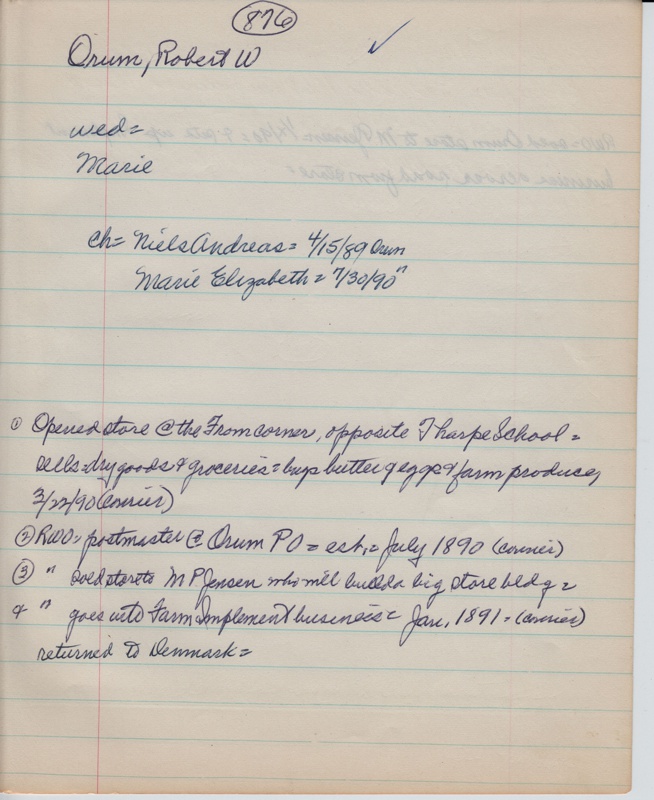 876
Orum, Robert W
wed=
Marie
ch= Niels Andreas = 4/15/89 Orum
Marie Elizabeth = 7/30/90 "
① Opened store @ the From corner, opposite Tharpe School =
sells = dry goods & groceries = buys butter & eggs & farm produce,
3/22/90 (courier)
② RWO = postmaster @ Orum PO = est. = July 1890 (courier)
③ " sold store to M P Jensen who will build a big store bldg =
& " goes into Farm Implement business = Jan, 1891 - (courier)
returned to Denmark =